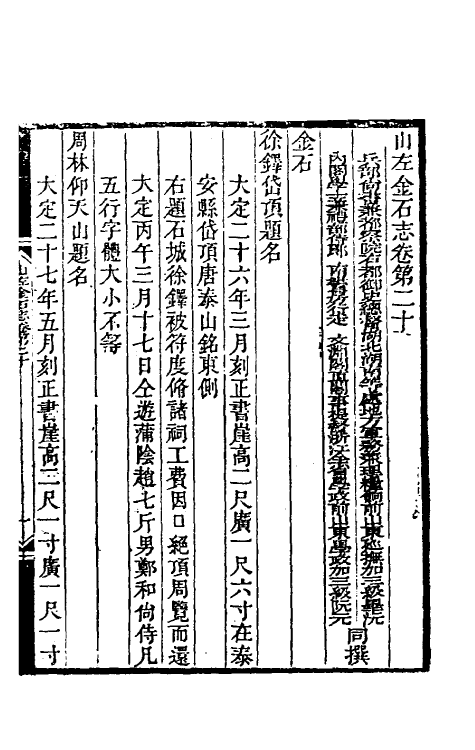 山左金石志卷第二十
兵部尚書兼都察院右都御史總督湖北湖南等處地方軍務兼理糧餉前山東巡撫加三級畢沅
內閣學士兼禮部侍郎 南書房行走 文淵閣直閣事提督浙江全省學政前山東學政加三級阮元
同撰
金石
徐鐸岱頂題名
大定二十六年三月刻正書崖高二尺廣一尺六寸在泰
安縣岱頂唐泰山銘東側
右題石城徐鐸被符度脩諸祠工費因口絕頂周覽而還
大定丙午三月十七日仝遊蒲陰趙七斤男鄭和尙侍凡
五行字體大小不等
周林仰天山題名
大定二十七年五月刻正書崖高三尺一寸廣一尺一寸
山左金石志卷第二十
一